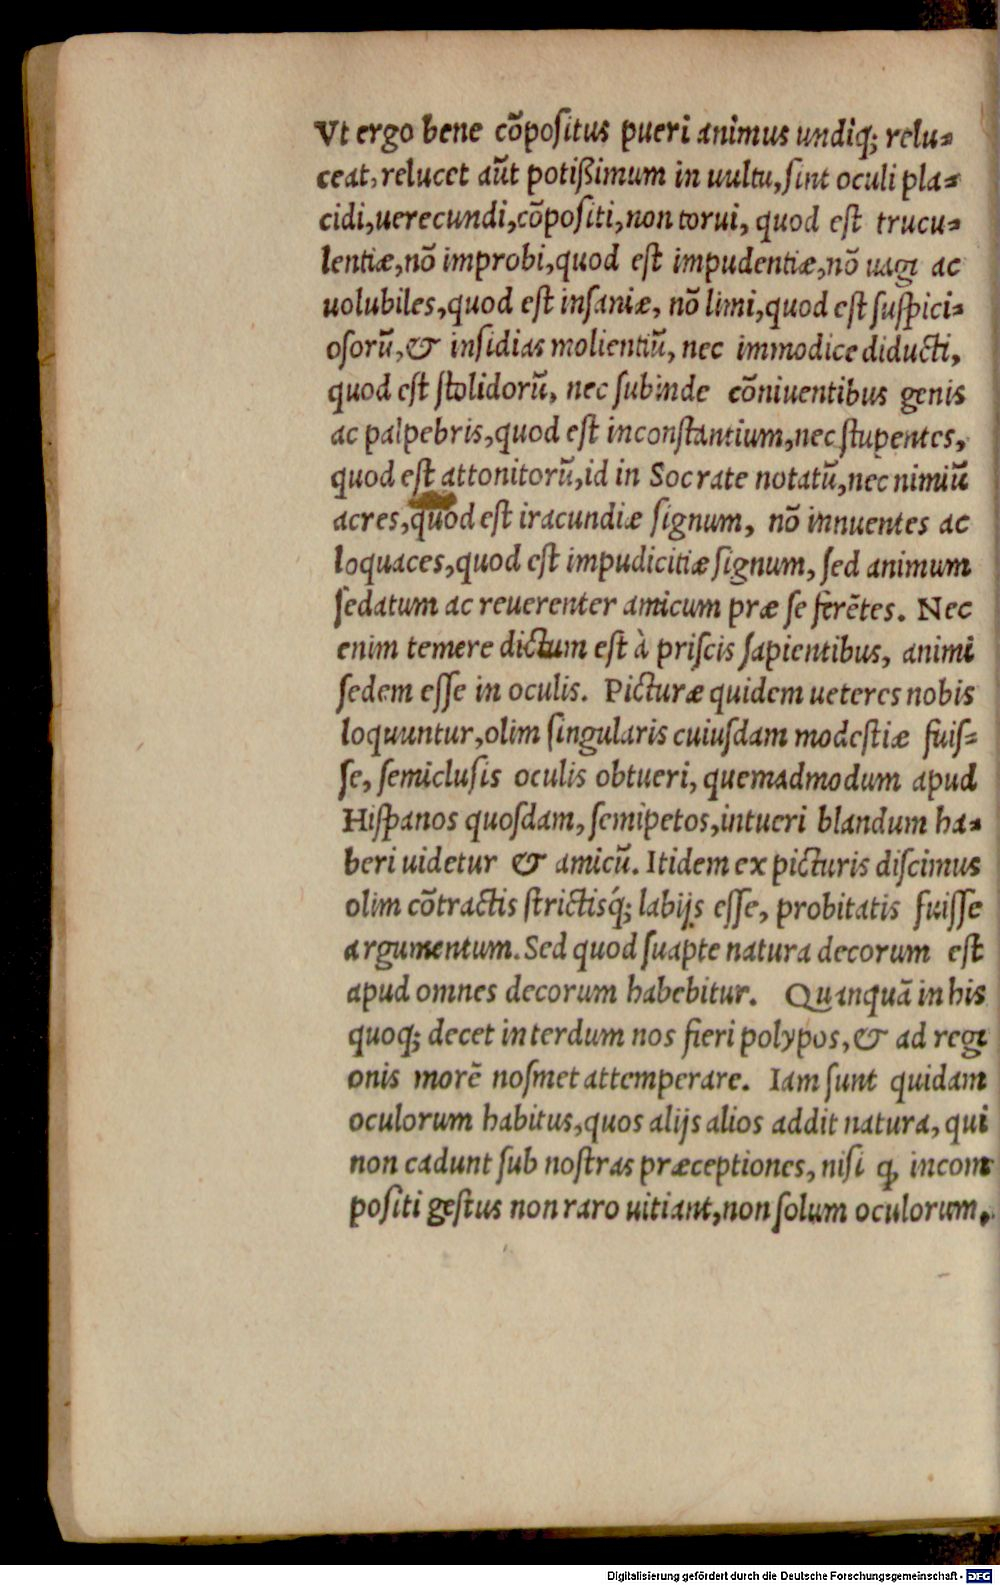 Vt ergo bene cõpositus pueri animus undiq; relu⸗
ceat, relucet aũt potißimum in uultu, sint oculi pla⸗
cidi, uerecundi, cõpositi, non torui, quod est trucu⸗
lentiæ, nõ improbi, quod est impudentiæ, nõ uagi ac
uolubiles, quod est insaniæ, nõ limi, quod est suspici⸗
osorũ, & insidias molientiũ, nec immodice diducti,
quod est stolidorũ, nec subinde cõniuentibus genis
ac palpebris, quod est inconstantium, nec stupentes,
quod est attonitorũ, id in Socrate notatũ, nec nimiũ
acres, quod est iracundiæ signum, nõ innuentes ac
loquaces, quod est impudicitiæ signum, sed animum
sedatum ac reuerenter amicum præ se ferẽtes. Nec
enim temere dictum est à priscis sapientibus, animi
sedem esse in oculis. Picturæ quidem ueteres nobis
loquuntur, olim singularis cuiusdam modestiæ fuis⸗
se, semiclusis oculis obtueri, quemadmodum apud
Hispanos quosdam, semipetos, intueri blandum ha⸗
beri uidetur & amicũ. Itidem ex picturis discimus
olim cõtractis strictisq́; labijs esse, probitatis fuisse
argumentum. Sed quod suapte natura decorum est
apud omnes decorum habebitur. Quanquã in his
quoq; decet interdum nos fieri polypos, & ad regi
onis morẽ nosmet attemperare. Iam sunt quidam
oculorum habitus, quos alijs alios addit natura, qui
non cadunt sub nostras præceptiones, nisi ꝙ incom
positi gestus non raro uitiant, non solum oculorum,
Digitalisierung gefördert durch die Deutsche Forschungsgemeinschaft - DFG